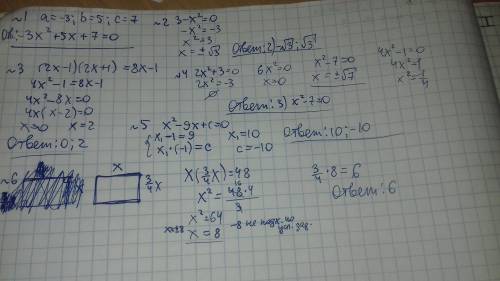 ~1 a=-3; b=5; c=7
Ов: -3x²+5x+7=0
~2 3-x²=0
-x²=-3
x²=3
x=±√3
Ответ: 2) -√3; √3
~3 (2x-1)(2x+1)=8x-1
4x²-1=8x-1
4x²-8x=0
4x(x-2)=0
x=0 x=2
Ответ: 0; 2
~4 2x²+3=0
2x²=-3
∅
6x²=0
x=0
x²-7=0
x=±√7
4x²-1=0
4x²=1
x²=1/4
Ответ: 3) x²-7=0
~5 x²-9x+c=0
{x₁-1=9 x₁=10
x₁·(-1)=c c=-10
Ответ: 10; -10
~6
x
3/4x
x(3/4x)=48
x²=48·4/3
16
x²=64
x=8
-8 не подх. по
усл. зад.
3/4·8=6
Ответ: 6